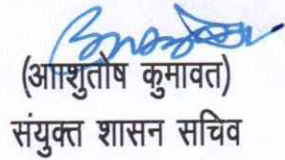 (आाशुतोष कुमावत)
संयुक्त शासन सचिव